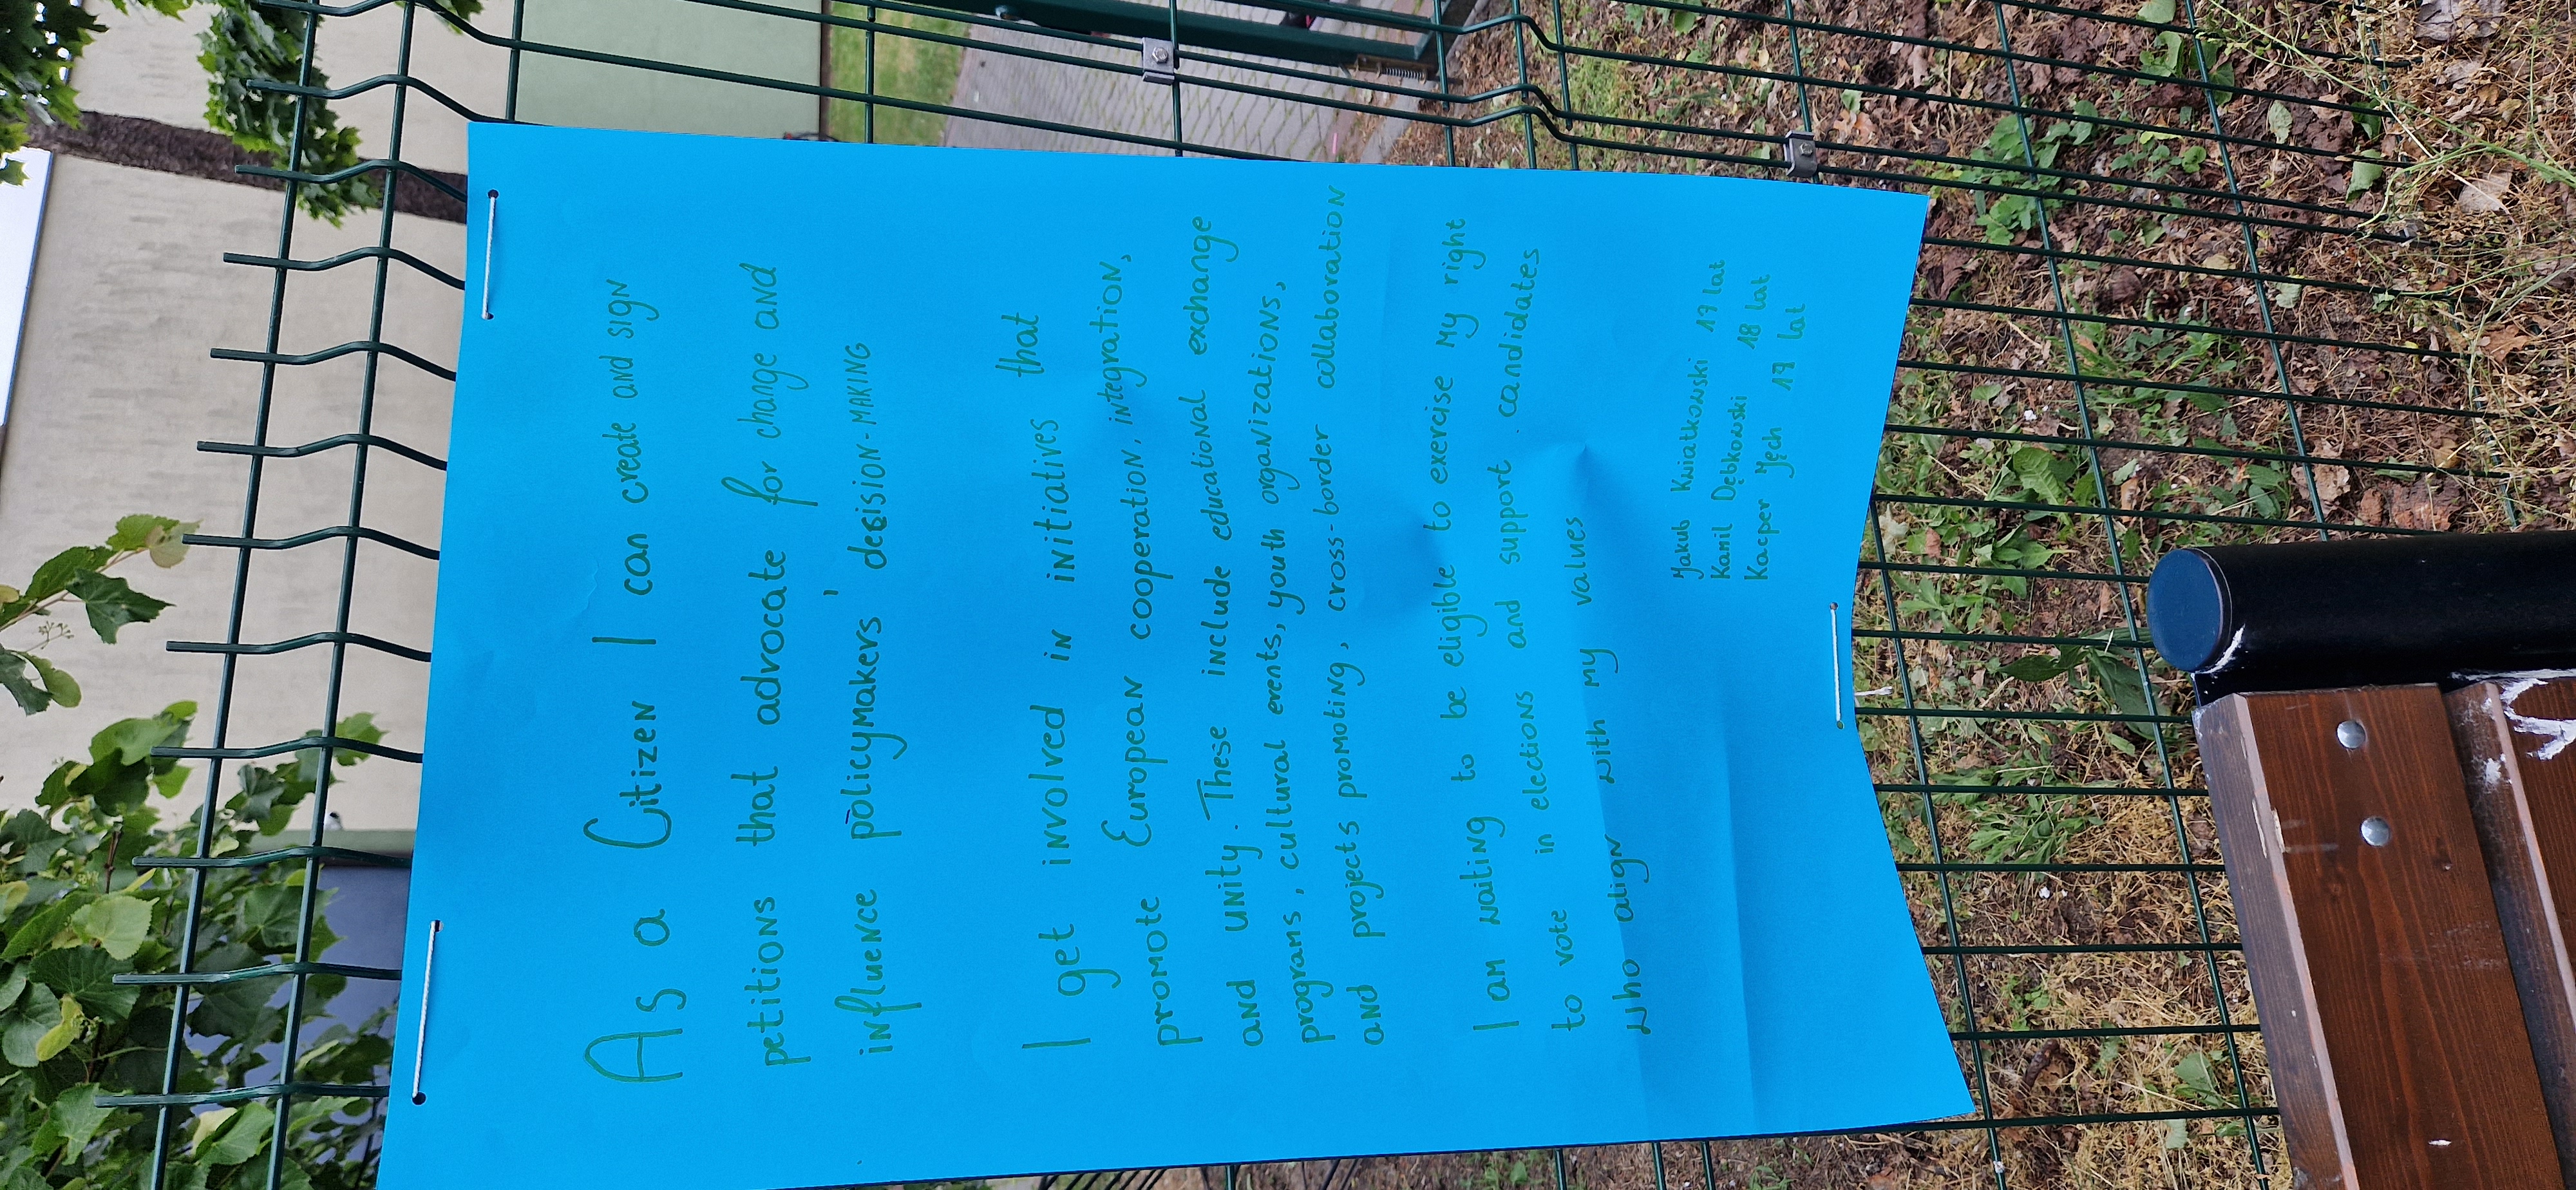 As a Citizen I can create and sign
petitions that advocate for change and
influence policymakers' decision-making
I get involved in initiatives that
promote European cooperation, integration,
and unity. These include educational exchange
programs, cultural events, youth organizations,
and projects promoting, cross-border collaboration
I am waiting to be eligible to exercise my right
to vote in elections and support candidates
who align with my values
Jakub Kwiatkowski 17 lat
Kamil Dębkowski 18 lat
Kacper Jęch 17 lat